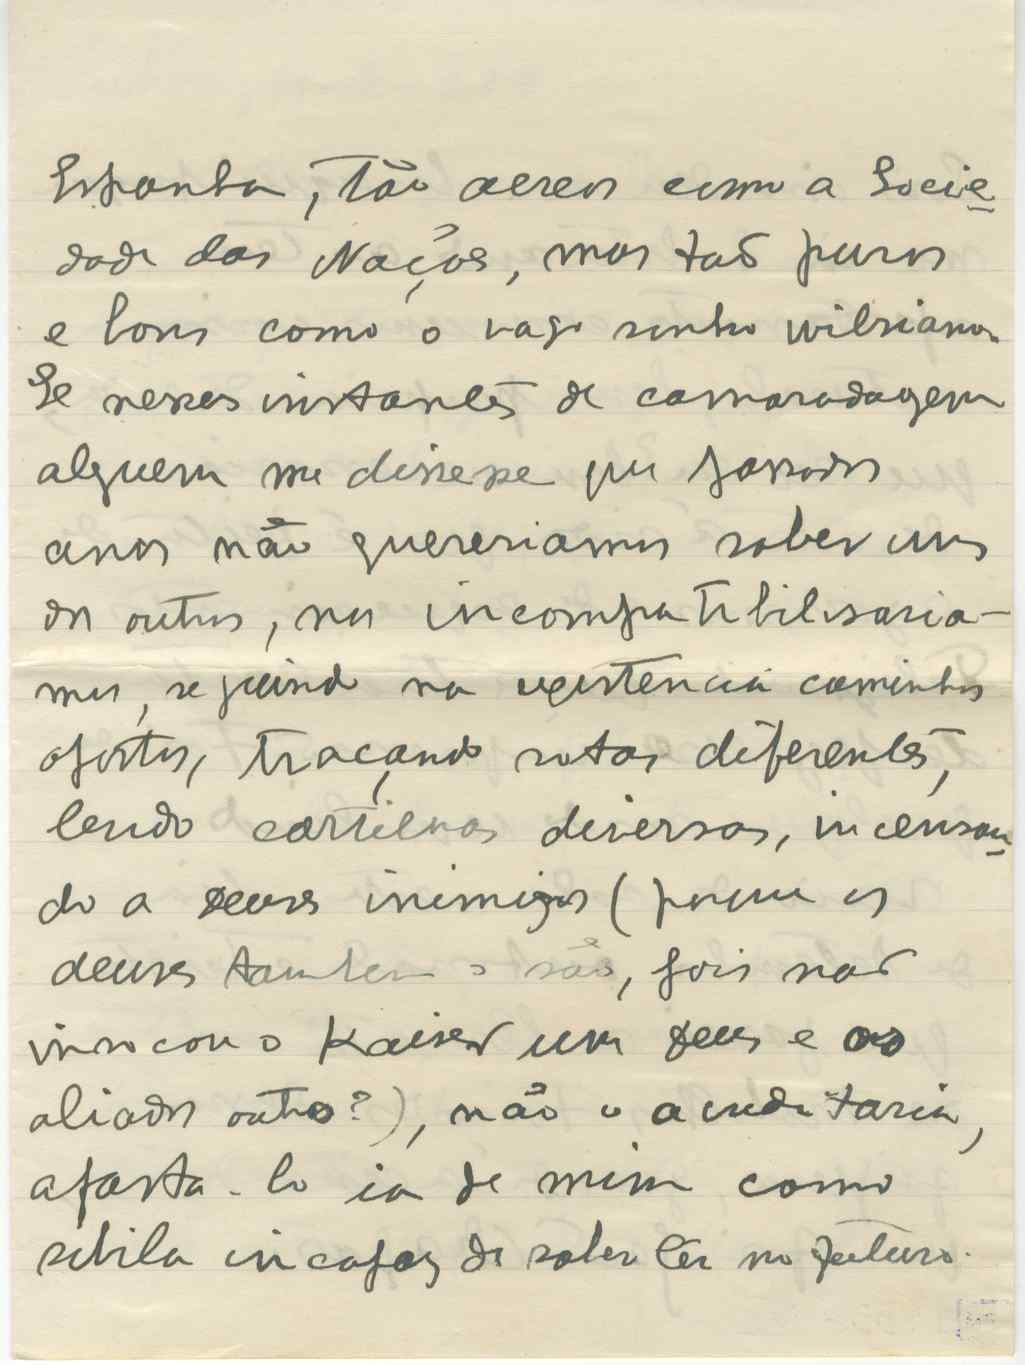 Espanha, tão aereos como a Socie
dade das Nações, mas tão puros
e bons como o vago sonho wilsiano.
Se nesses instantes de camaradagem
alguem me dissesse que passados
anos não quereriamos saber uns
dos outros, nos incompatibilisaria-
mos, seguindo na existencia caminhos
opostos, traçando rotas diferentes,
lendo cartilhas diversas, incensan
do a deuses inimigos (porque os
deuses tambem o são, pois não
invocou o Kaiser um deus e os
aliados outro?), não o acreditaria,
afasta-lo ia de mim como
sibila incapaz de saber lêr no futuro.